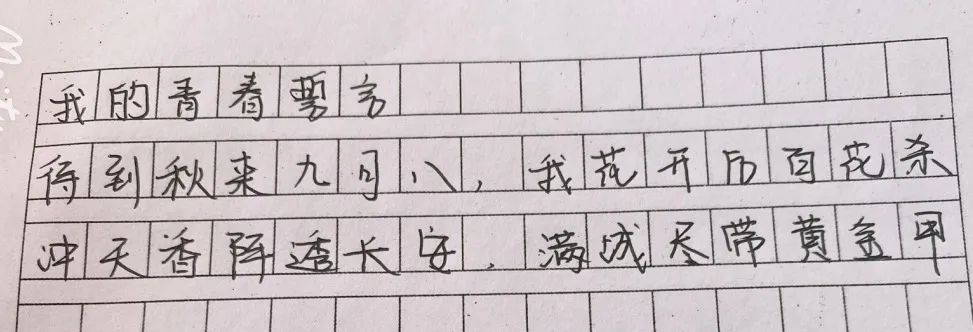 我的青春誓言
得到秋来九月八，我花开后百花杀
冲天香阵透长安，满城尽带黄金甲